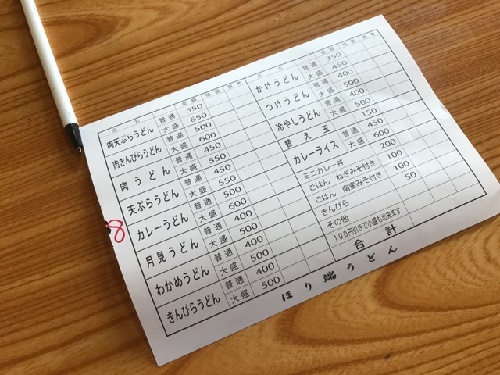 肉天ぷらうどん 普通 550
大盛 650
肉きんぴらうどん 普通 500
大盛 600
肉うどん 普通 450
大盛 550
天ぷらうどん 普通 450
大盛 550
カレーうどん 普通 500
大盛 600
月見うどん 普通 400
大盛 500
わかめうどん 普通 400
大盛 500
きんぴらうどん 普通 400
大盛 500
かけうどん 普通 350
大盛 450
つけうどん 普通 400
大盛 500
冷やしうどん 普通 400
大盛 500
替え玉 150
カレーライス 普通 450
大盛 600
ミニカレー丼 200
ごはん、ねぎみそ付き 100
ごはん 100
きんぴら 50
その他
合計
ほり端うどん
8